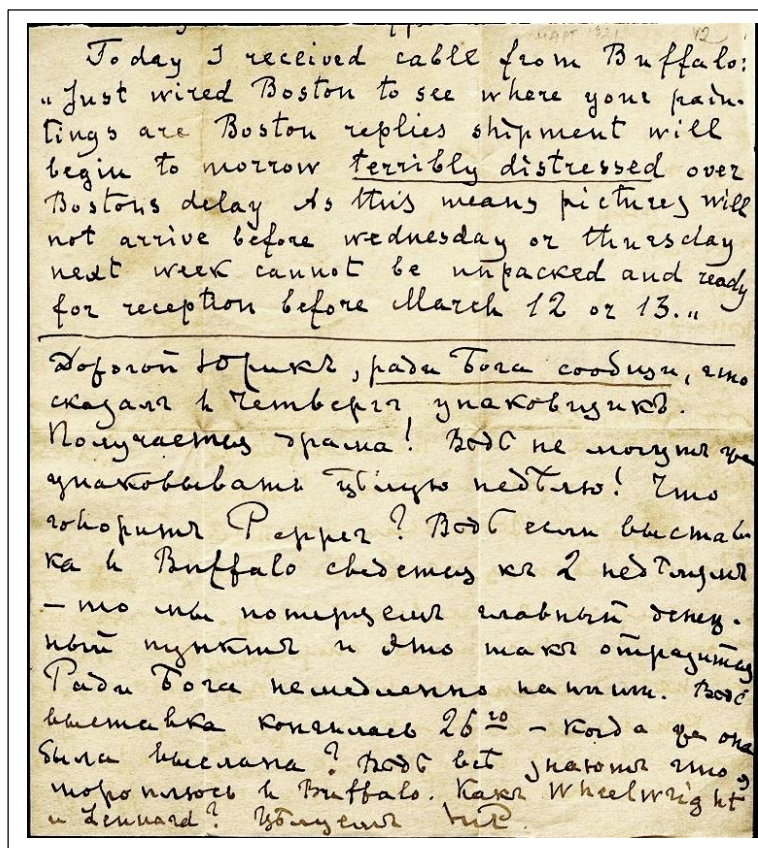 март 1921 12
Today I received cable from Buffalo:
„Just wired Boston to see where your pain-
tings are Boston replies shipment will
begin to morrow terribly distressed over
Bostons delay As this means pictures will
not arrive before wednesday or thursday
next week cannot be unpacked and ready
for reception before March 12 or 13.„
Дорогой Юрикъ, ради Бога сообщи, что
сказалъ в Четвергъ упаковщикъ.
Получается драма! Вѣдь не могутъ же
упаковывать цѣлую недѣлю! Что
говоритъ Pepper? Вѣдь если выстав
ка в Buffalo сведется къ 2 недѣлямъ
– то мы потеряемъ главный денеж-
ный пунктъ и это такъ отразится
Ради Бога немедленно напиши. Вѣдь
выставка кончилась 26го – когда же она
была выслана? Вѣдь всѣ знаютъ что я
тороплюсь в Buffalo. Какъ Wheelwright
и Lennard? Цѣлуемъ НР.